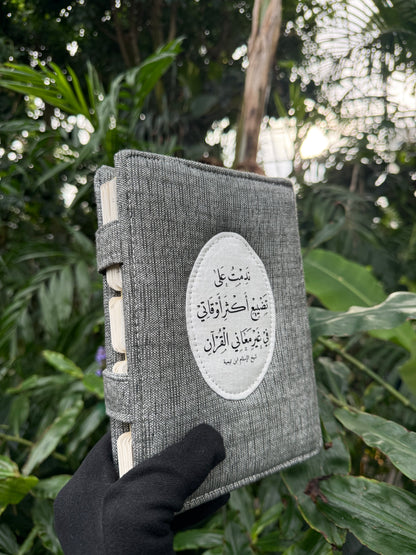 نَدِمْتُ عَلىٰ
تَضْيِيْعِ أَكْثَرِ أَوْقَاتِيْ
فِيْ غَيْرِ مَعَانِي الْقُرْآنِ
شيخ الإسلام ابن تيمية